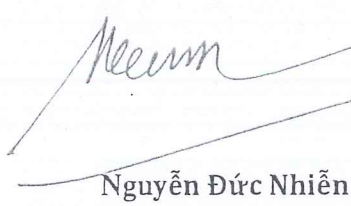 Nguyễn Đức Nhiễn